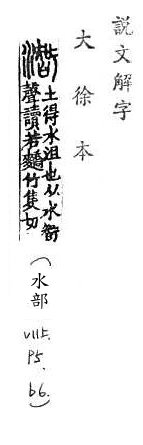 説文解字
大徐本
土得水沮也从水
聲讀若竹隻切
(水部
VIII上.
P5.
b6.)